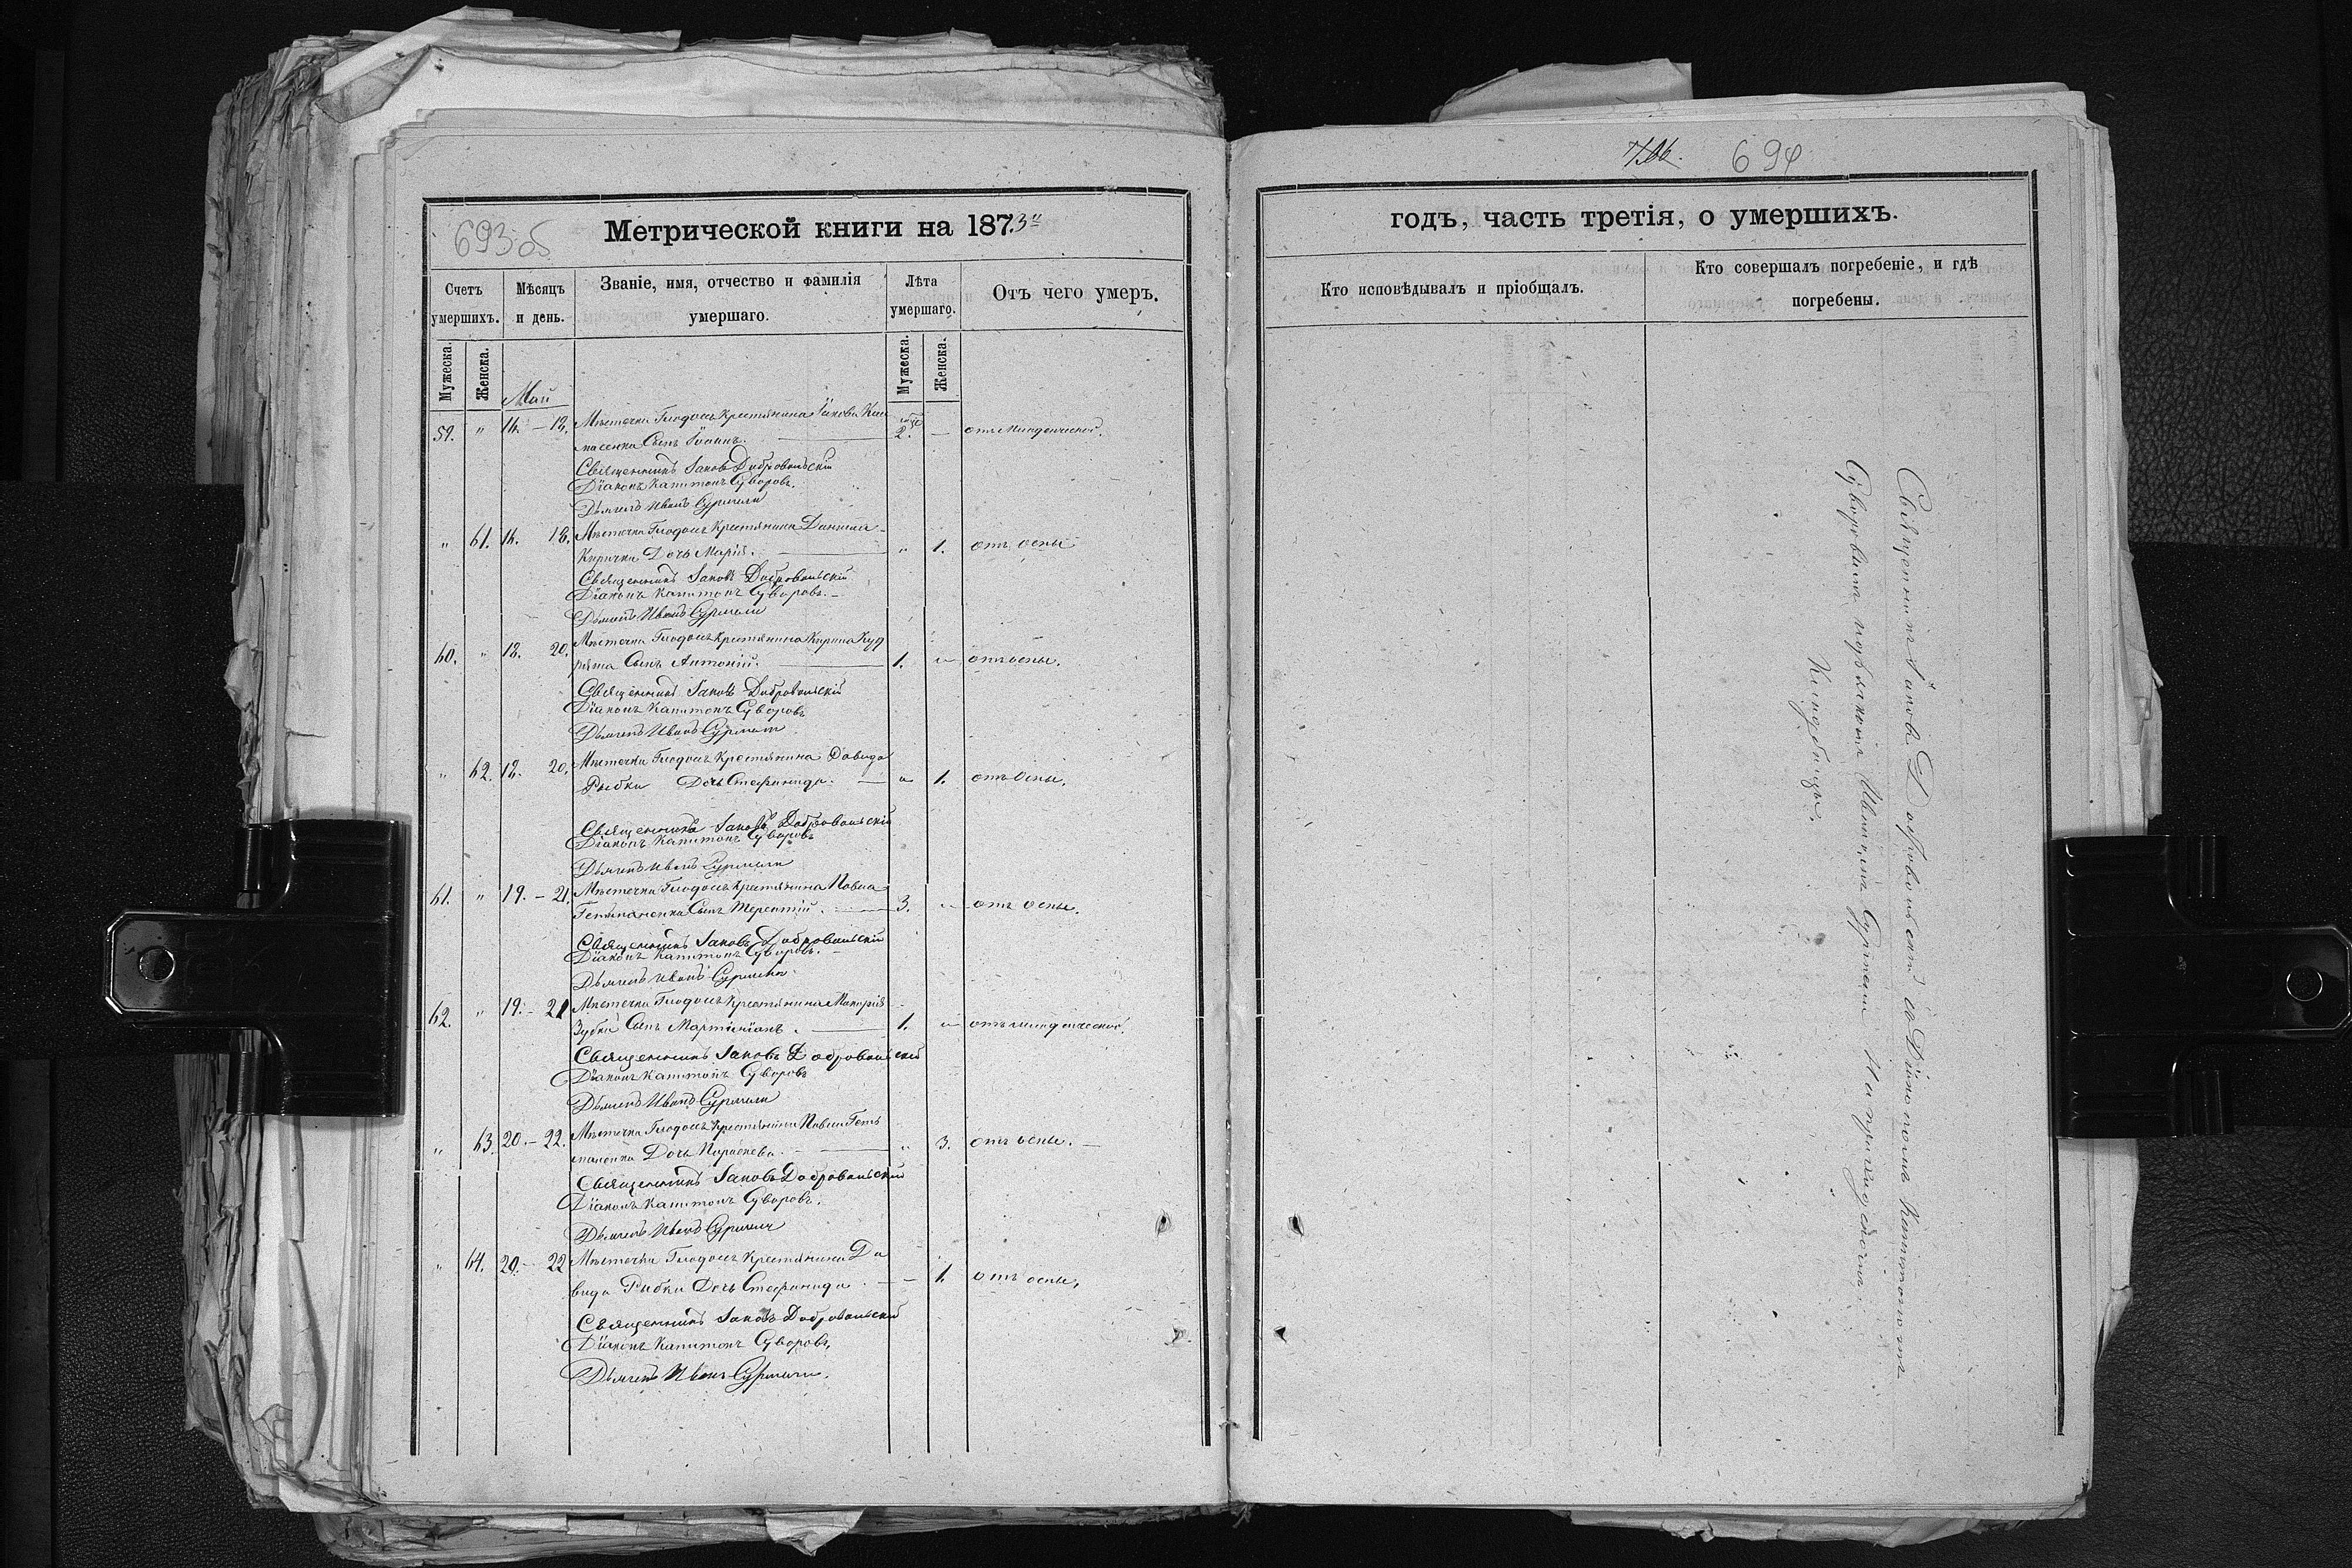 693 об
Метрической книги на 1873"
Счетъ умершихъ.
Мѣсяцъ и день.
Званіе, имя, отчество и фамилія умершаго.
Лѣта умершаго.
Отъ чего умеръ.
Мужеска.
Женска.
Мужеска.
Женска.
Май
59. " 16. – 18. Мѣстечка Глодосъ Крестянина Іакова
Сынъ Іоаннъ. 2. — отъ младенческой.
Священникъ Іаковъ Добровольскій
Діаконъ Капитонъ Суворовъ.
Дьячекъ Иванъ Сурмели
" 61. 16. 18. Мѣстечка Глодосъ Крестянина Даниила
Кирички Дочь Марія. " 1. отъ оспы
Священникъ Іаковъ Добровольскій
Діаконъ Капитонъ Суворовъ.
Дьячекъ Иванъ Сурмели
60. " 18. 20. Мѣстечка Глодосъ Крестянина
Сынъ Антоній. 1. " отъ оспы.
Священникъ Іаковъ Добровольскій
Діаконъ Капитонъ Суворовъ
Дьячекъ Иванъ Сурмели
" 62. 18. 20. Мѣстечка Глодосъ Крестянина Давида
Рыбки Дочь Стефанида. " 1. отъ оспы.
Священникъ Іаковъ Добровольскій
Діаконъ Капитонъ Суворовъ
Дьячекъ Иванъ Сурмели
61. " 19. – 21. Мѣстечка Глодосъ Крестянина Павла
Гетманенка Сынъ Терентій. 3. " отъ оспы.
Священникъ Іаковъ Добровольскій
Діаконъ Капитонъ Суворовъ.
Дьячекъ Иванъ Сурмели
62. " 19. – 21 Мѣстечка Глодосъ Крестянина Макарія
Зубка Сынъ Мартиніанъ. 1. " отъ младенческой.
Священникъ Іаковъ Добровольскій
Діаконъ Капитонъ Суворовъ
Дьячекъ Иванъ Сурмели
" 63. 20. – 22. Мѣстечка Глодосъ Крестянина Павла Гетъ
маненка Дочь Параскева. " 3. отъ оспы. –
Священникъ Іаковъ Добровольскій
Діаконъ Капитонъ Суворовъ.
Дьячекъ Иванъ Сурмели
" 64. 20. – 22 Мѣстечка Глодосъ Крестянина Да
вида Рыбки Дочь Стефанида. – 1. отъ оспы,
Священникъ Іаковъ Добровольскій
Діаконъ Капитонъ Суворовъ,
Дьячекъ Иванъ Сурмели.
694
годъ, часть третія, о умершихъ.
Кто исповѣдывалъ и пріобщалъ.
Кто совершалъ погребеніе, и гдѣ
погребены.
Священникъ Іаковъ Добровольскій съ Діакономъ Капитономъ
Суворовымъ и дьячкомъ Иваномъ Сурмели На приходскомъ
Кладбищѣ.